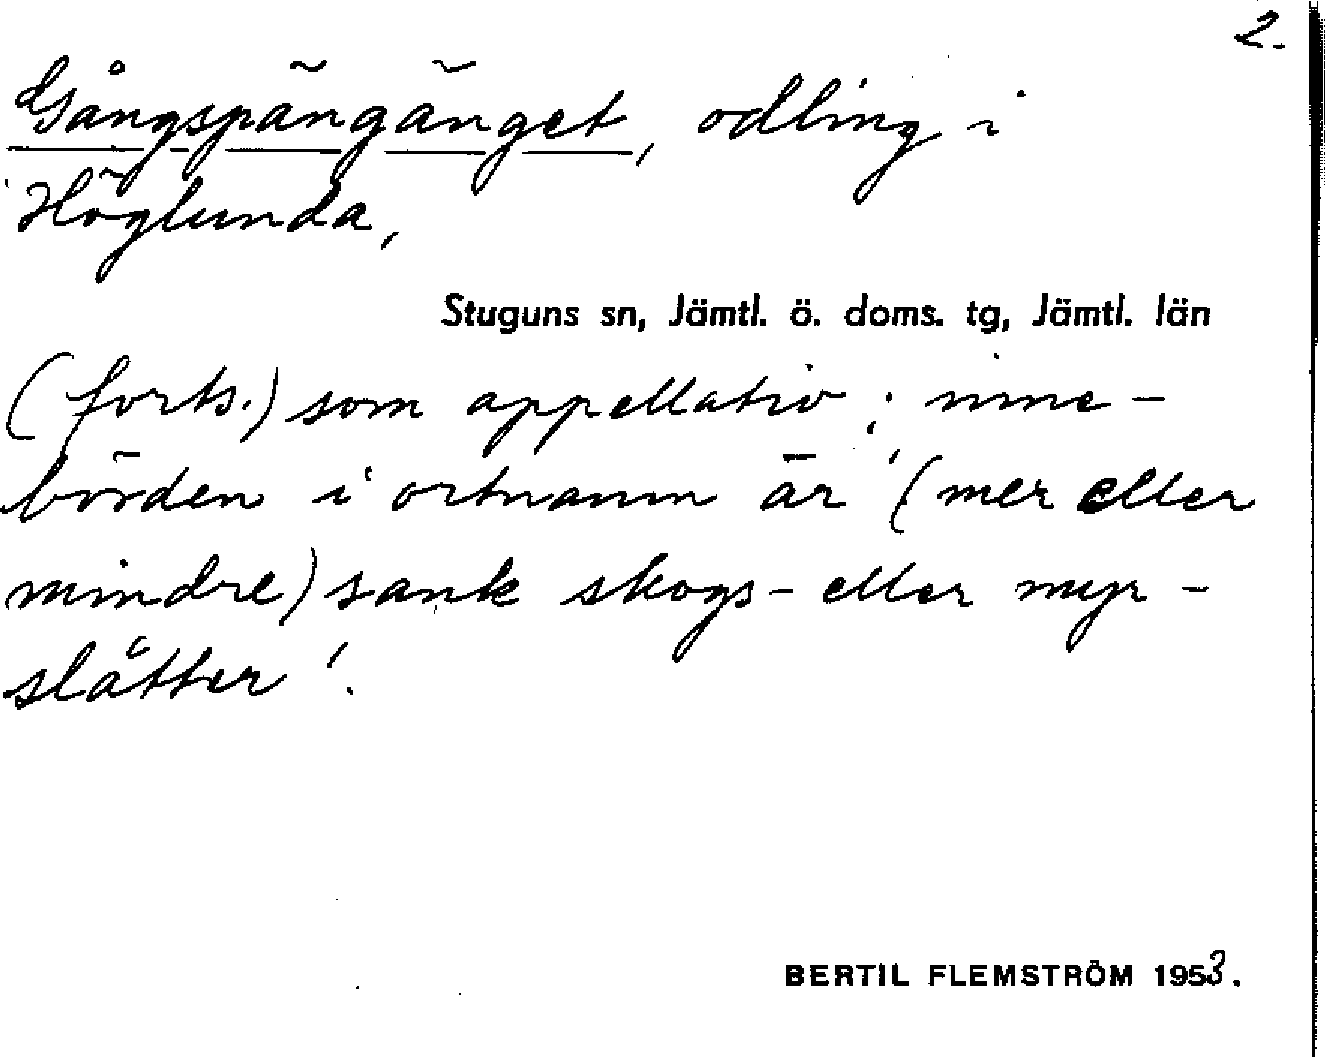 2.
Gångspängänget, odling i
Höglunda,
Stuguns sn, Jämtl. ö. doms. tg, Jämtl. län
(forts.) som appellativ; inne-
börden i ortnamn är '(mer eller
mindre) sank skogs- eller myr-
slåtter'.
BERTIL FLEMSTRÖM 1953.